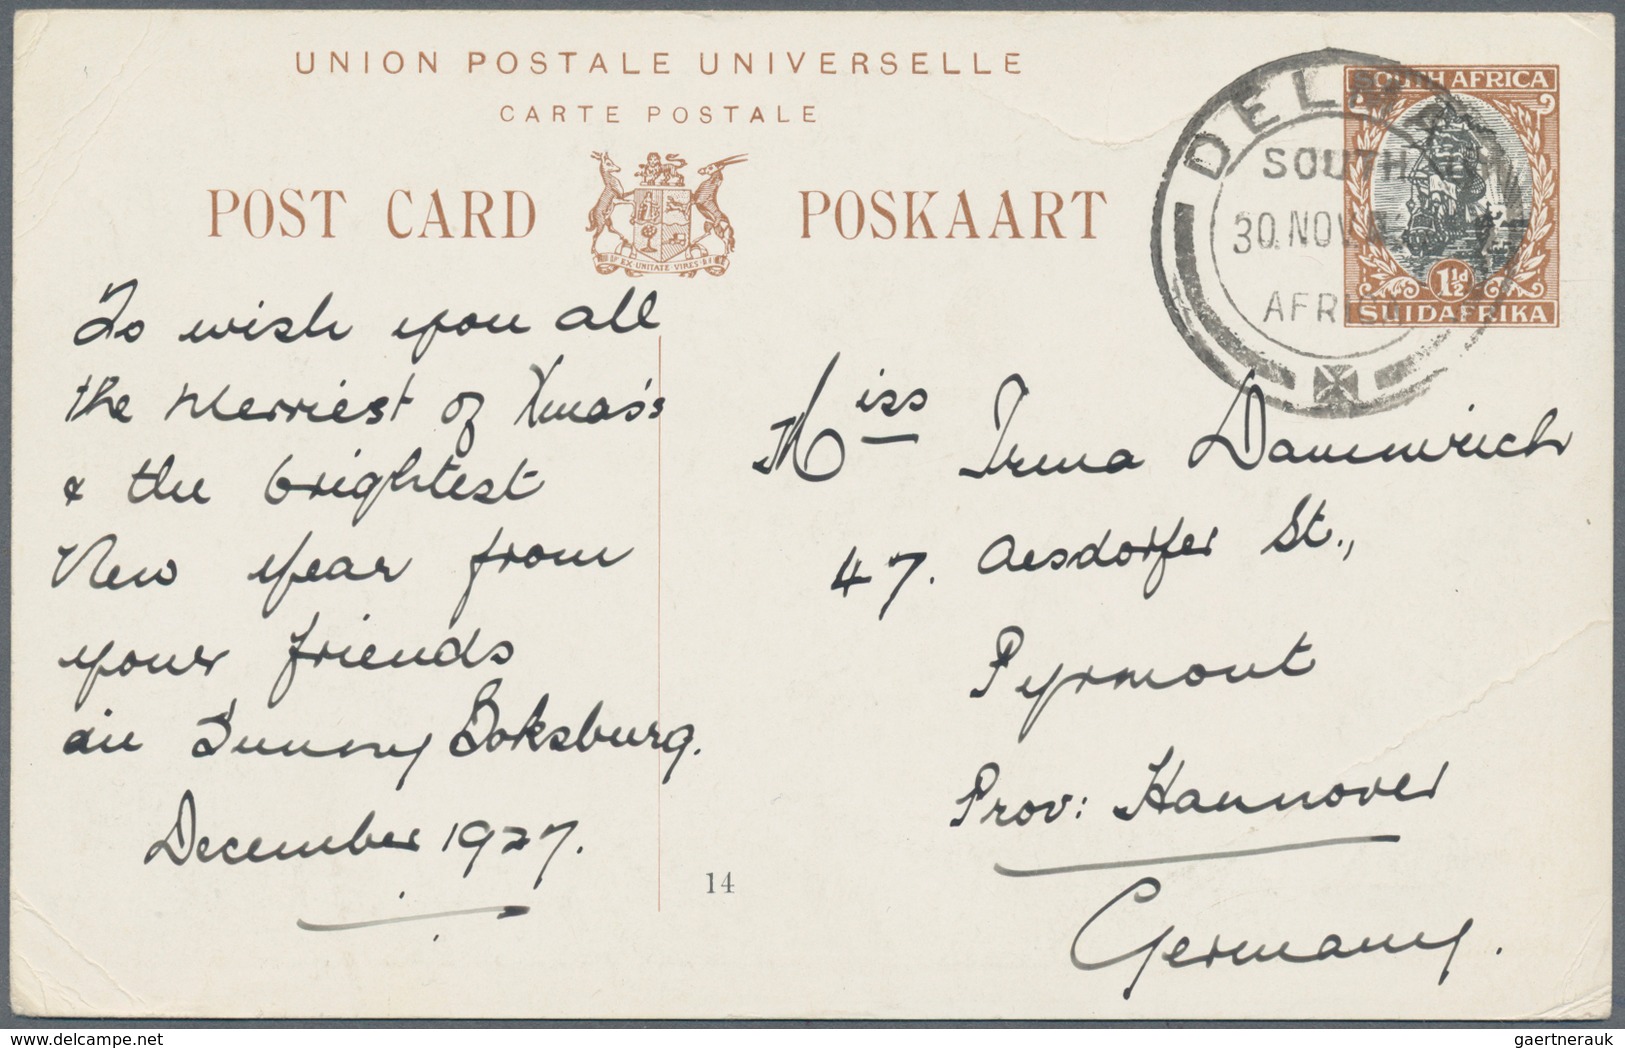 UNION POSTALE UNIVERSELLE
CARTE POSTALE
POST CARD
POSKAART
EX UNITATE VIRES
SOUTH AFRICA
1½d
SUIDAFRIKA
SOUTH
30 NOV
To wish you all
the Merriest of Xmas's
& the brightest
New year from
your friends
in Sunny Boksburg.
December 1927.
14
Miss Irma Dammrich
47. Oesdorfer St.,
Pyrmont
Prov: Hannover
Germany.
delcampe.net
gaertnerauk